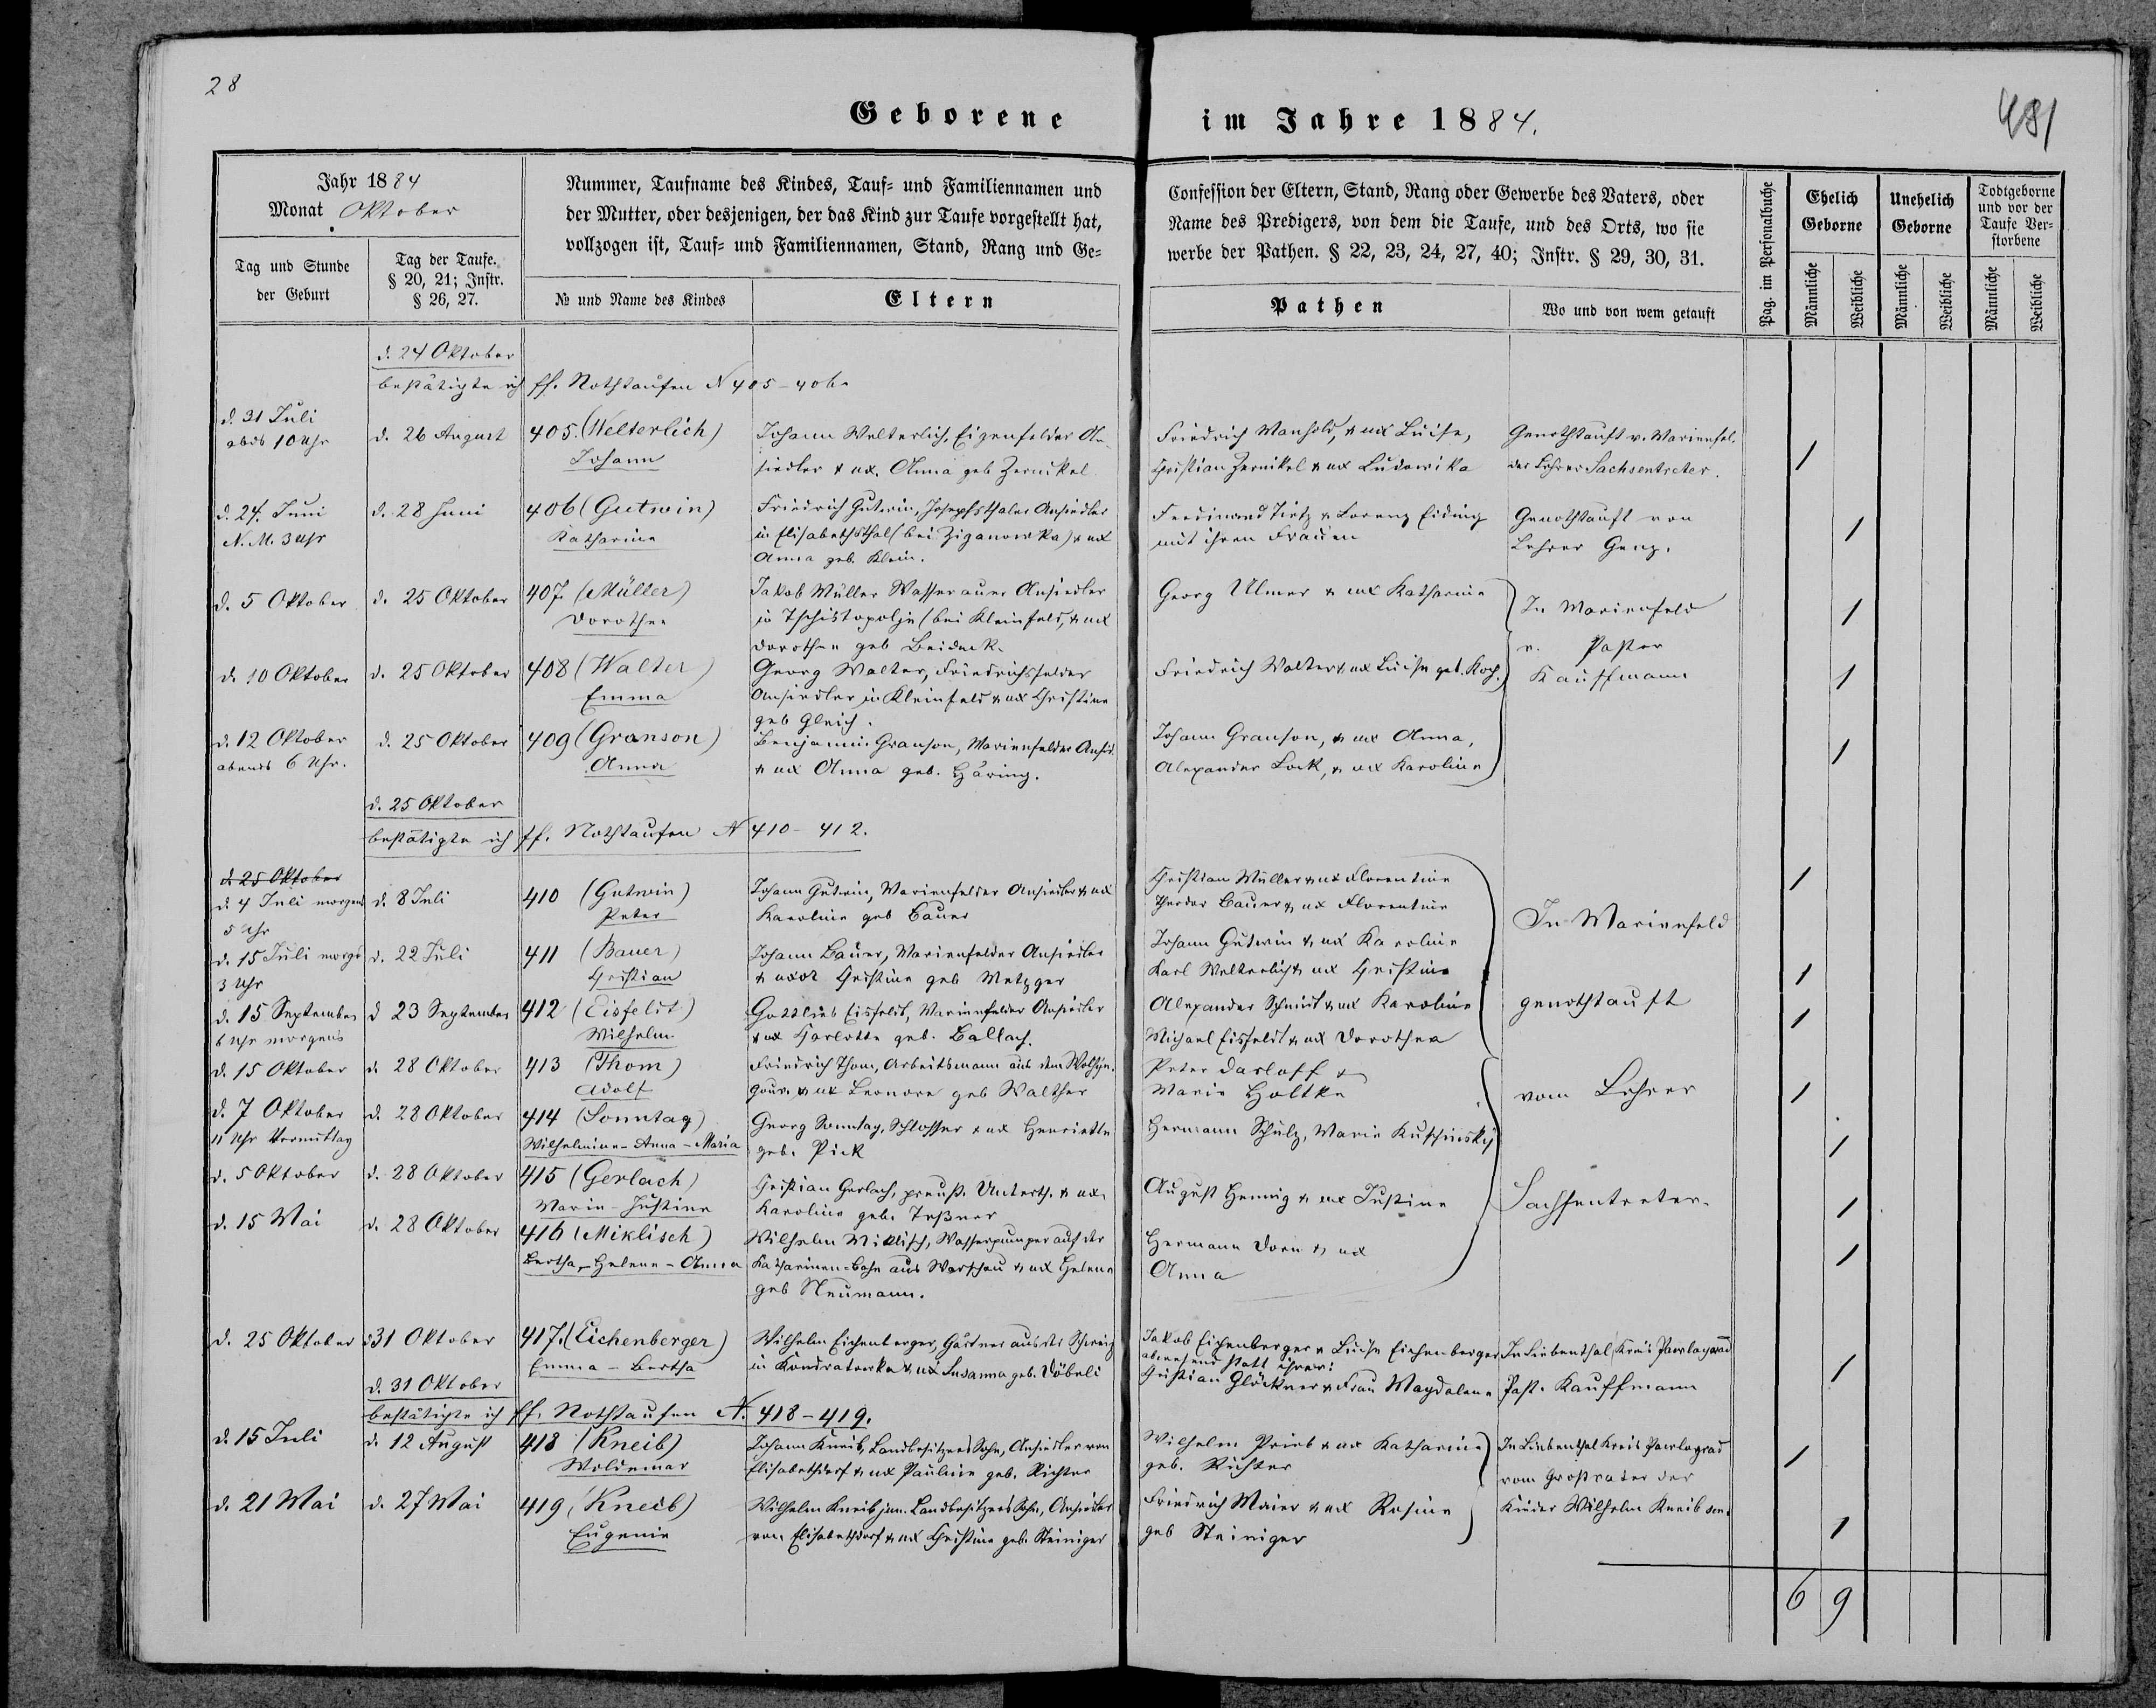 28
Geborene im Jahre 1884.
481
Jahr 1884
Monat Oktober
Tag und Stunde
der Geburt
Tag der Taufe.
§ 20, 21; Instr.
§ 26, 27.
Nummer, Taufname des Kindes, Tauf- und Familiennamen und
der Mutter, oder desjenigen, der das Kind zur Taufe vorgestellt hat,
vollzogen ist, Tauf- und Familiennamen, Stand, Rang und Ge-
№ und Name des Kindes
Eltern
Confession der Eltern, Stand, Rang oder Gewerbe des Vaters, oder
Name des Predigers, von dem die Taufe, und des Orts, wo sie
werbe der Pathen. § 22, 23, 24, 27, 40; Instr. § 29, 30, 31.
Pathen
Wo und von wem getauft
Pag. im Personalbuche
Ehelich
Geborne
Unehelich
Geborne
Todtgeborne
und vor der
Taufe Ver-
storbene
Männliche
Weibliche
Männliche
Weibliche
Männliche
Weibliche
d. 24 Oktober
bestätigte ich ff. Nothtaufen N 405-406.
d. 31 Juli
abds 10 Uhr
d. 26 August
405. (Welterlich)
Johann
Johann Welterlich, Eigenfelder An-
siedler & ux. Anna geb Zernikel
Friedrich Manhold, & ux Luise,
Christian Zernikel & ux Ludowika
Genothtauft v. Marienfel-
der Lehrer Sachsentreter.
d. 24. Juni
N. M. 3 Uhr
d. 28 Juni
406 (Gutwin)
Katharina
Friedrich Gutwin, Josephsthaler Ansiedler
in Elisabethsthal (bei Ziganowka) & ux
Anna geb. Klein.
Ferdinand Tietz & Lorenz Eiding
mit ihren Frauen
Genothtauft von
Lehrer Genz.
d. 5 Oktober
d. 25 Oktober
407. (Müller)
Dorothea
Jakob Müller Wasserauer Ansiedler
in Tschistopolje (bei Kleinfeld), & ux
Dorothea geb Beideck.
Georg Ulmer & ux Katharina
In Marienfeld
v. Pastor
Kauffmann
d. 10 Oktober
d. 25 Oktober
408 (Walter)
Emma
Georg Walter, Friedrichsfelder
Ansiedler in Kleinfeld & ux Christine
geb Gleich.
Friedrich Walter & ux Luise geb. Koch.
d. 12 Oktober
abends 6 Uhr.
d. 25 Oktober
409 (Granson)
Anna
Benjamin Granson, Marienfelder Ansied.
& ux Anna geb. Häring.
Johann Granson, & ux Anna,
Alexander Lock, & ux Karoline
d. 25 Oktober
bestätigte ich ff. Nothtaufen N 410-412.
d. 25 Oktober
d. 4 Juli morgens
5 Uhr
d. 8 Juli
410 (Gutwin)
Peter
Johann Gutwin, Marienfelder Ansiedler & ux
Karoline geb Bauer
Christian Müller & ux Florentine
Theodor Bauer & ux Florentine
In Marienfeld
genothtauft
d. 15 Juli morgs
3 Uhr
d. 22 Juli
411 (Bauer)
Christian
Johann Bauer, Marienfelder Ansiedler
& uxor Christine geb Metzger
Johann Gutwin & ux Karoline
Karl Welterlich & ux Christine
d. 15 September
6 Uhr morgens
d 23 September
412 (Eisfeldt)
Wilhelm
Gottlieb Eisfeldt, Marienfelder Ansiedler
& ux Charlotte geb. Ballach.
Alexander Schmidt & ux Karoline
Michael Eisfeldt & ux Dorothea
d. 15 Oktober
d. 28 Oktober
413 (Thom)
Adolf
Friedrich Thom, Arbeitsmann aus dem Wolhyn.
Gouv. & ux Leonore geb Walther
Peter Darloff &
Marie Holtke
vom Lehrer
Sachsentreter.
d. 7 Oktober
11 Uhr Vormittag
d. 28 Oktober
414 (Sonntag)
Wilhelmine-Anna-Maria
Georg Sonntag, Schlosser & ux Henriette
geb. Pick
Hermann Schulz, Marie Kuschinsky
d. 5 Oktober
d. 28 Oktober
415 (Gerlach)
Marie-Justine
Christian Gerlach, preuß. Unterth. & ux
Karoline geb. Teßner
August Hennig & ux Justine
d. 15 Mai
d. 28 Oktober
416 (Miklisch)
Bertha-Helene-Anna
Wilhelm Miklisch, Wasserpumper auf der
Katharinen-Bahn aus Warschau & ux Helene
geb Neumann.
Hermann Dorn & ux
Anna
d. 25 Oktober
d 31 Oktober
417. (Eichenberger)
Emma-Bertha
Wilhelm Eichenberger, Gärtner aus der Schweiz
in Kondratowka & ux Susanna geb. Döbeli
Jakob Eichenberger & Luise Eichenberger
abwesend statt ihrer:
Christian Glöckner & Frau Magdalena
In Liebenthal Kreis Pawlograd
Past. Kauffmann
d. 31 Oktober
bestätigte ich ff. Nothtaufen N. 418-419.
d. 15 Juli
d. 12 August
418 (Kneib)
Woldemar
Johann Kneib, Landbesitzers Sohn, Ansiedler von
Elisabethdorf & ux Pauline geb. Richter
Wilhelm Prieb & ux Katharina
geb. Richter
In Liebenthal Kreis Pawlograd
vom Großvater der
Kinder Wilhelm Kneib sen.
d. 21 Mai
d. 27 Mai
419 (Kneib)
Eugenie
Wilhelm Kneib jun. Landbesitzers Sohn, Ansiedler
von Elisabethdorf & ux Christine geb. Steiniger
Friedrich Maier & ux Rosine
geb Steiniger
6 9